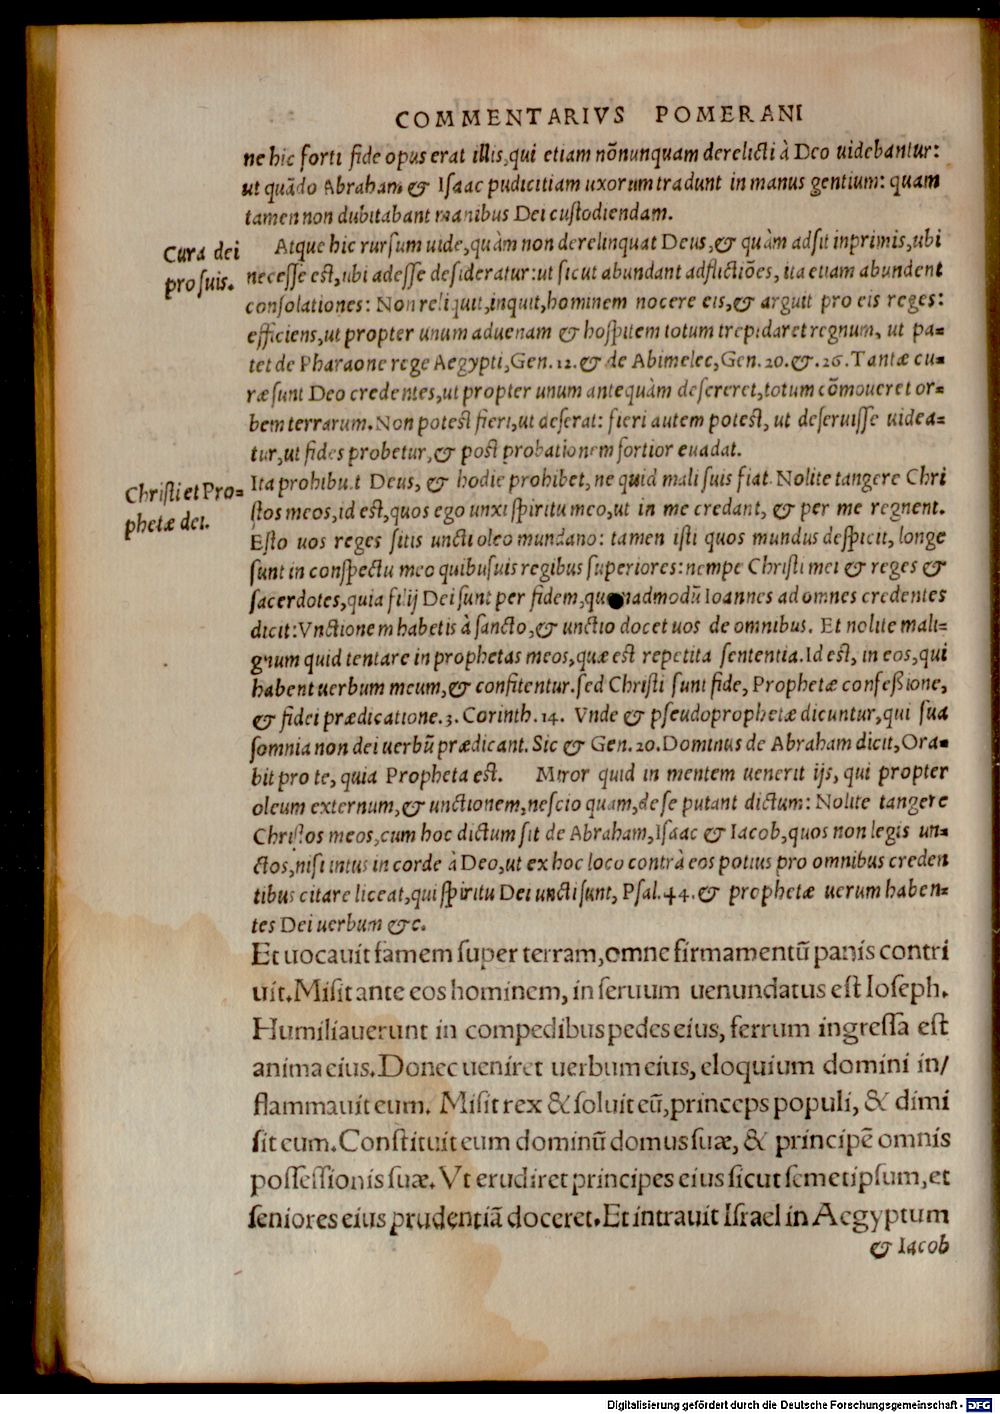 COMMENTARIVS POMERANI
ne hic forti fide opus erat illis, qui etiam nõnunquam derelicti à Deo uidebantur:
ut quãdo Abraham & Isaac pudicitiam uxorum tradunt in manus gentium: quam
tamen non dubitabant manibus Dei custodiendam.
Cura dei
pro suis.
Atque hic rursum uide, quàm non derelinquat Deus, & quàm adsit inprimis, ubi
necesse est, ubi adesse desideratur: ut sicut abundant adflictiões, ita etiam abundent
consolationes: Non reliquit, inquit, hominem nocere eis, & arguit pro eis reges:
efficiens, ut propter unum aduenam & hospitem totum trepidaret regnum, ut pa=
tet de Pharaone rege Aegypti, Gen. 12. & de Abimelec, Gen. 20. &. 26. Tantæ cu=
ræ sunt Deo credentes, ut propter unum antequàm desereret, totum cõmoueret or=
bem terrarum. Non potest fieri, ut deserat: fieri autem potest, ut deseruisse uidea=
tur, ut fides probetur, & post probationem fortior euadat.
Christi et Pro=
phetæ dei.
Ita prohibuit Deus, & hodie prohibet, ne quid mali suis fiat. Nolite tangere Chri
stos meos, id est, quos ego unxi spiritu meo, ut in me credant, & per me regnent.
Esto uos reges sitis uncti oleo mundano: tamen isti quos mundus despicit, longe
sunt in conspectu meo quibusuis regibus superiores: nempe Christi mei & reges &
sacerdotes, quia filij Dei sunt per fidem, quemadmodũ Ioannes ad omnes credentes
dicit: Vnctionem habetis à sancto, & unctio docet uos de omnibus. Et nolite mali=
gnum quid tentare in prophetas meos, quæ est repetita sententia. Id est, in eos, qui
habent uerbum meum, & confitentur. sed Christi sunt fide, Prophetæ confeßione,
& fidei prædicatione. 3. Corinth. 14. Vnde & pseudoprophetæ dicuntur, qui sua
somnia non dei uerbũ prædicant. Sic & Gen. 20. Dominus de Abraham dicit, Ora=
bit pro te, quia Propheta est. Miror quid in mentem uenerit ijs, qui propter
oleum externum, & unctionem, nescio quam, de se putant dictum: Nolite tangere
Christos meos, cum hoc dictum sit de Abraham, Isaac & Iacob, quos non legis un=
ctos, nisi intus in corde à Deo, ut ex hoc loco contrà eos potius pro omnibus creden
tibus citare liceat, qui spiritu Dei uncti sunt, Psal. 44. & prophetæ uerum haben=
tes Dei uerbum &c.
Et uocauit famem super terram, omne firmamentũ panis contri
uit. Misit ante eos hominem, in seruum uenundatus est Ioseph.
Humiliauerunt in compedibus pedes eius, ferrum ingressa est
anima eius. Donec ueniret uerbum eius, eloquium domini in/
flammauit eum. Misit rex & soluit eũ, princeps populi, & dimi
sit eum. Constituit eum dominũ domus suæ, & principẽ omnis
possessionis suæ. Vt erudiret principes eius sicut semetipsum, et
seniores eius prudentiã doceret. Et intrauit Israel in Aegyptum
& Iacob
Digitalisierung gefördert durch die Deutsche Forschungsgemeinschaft - DFG